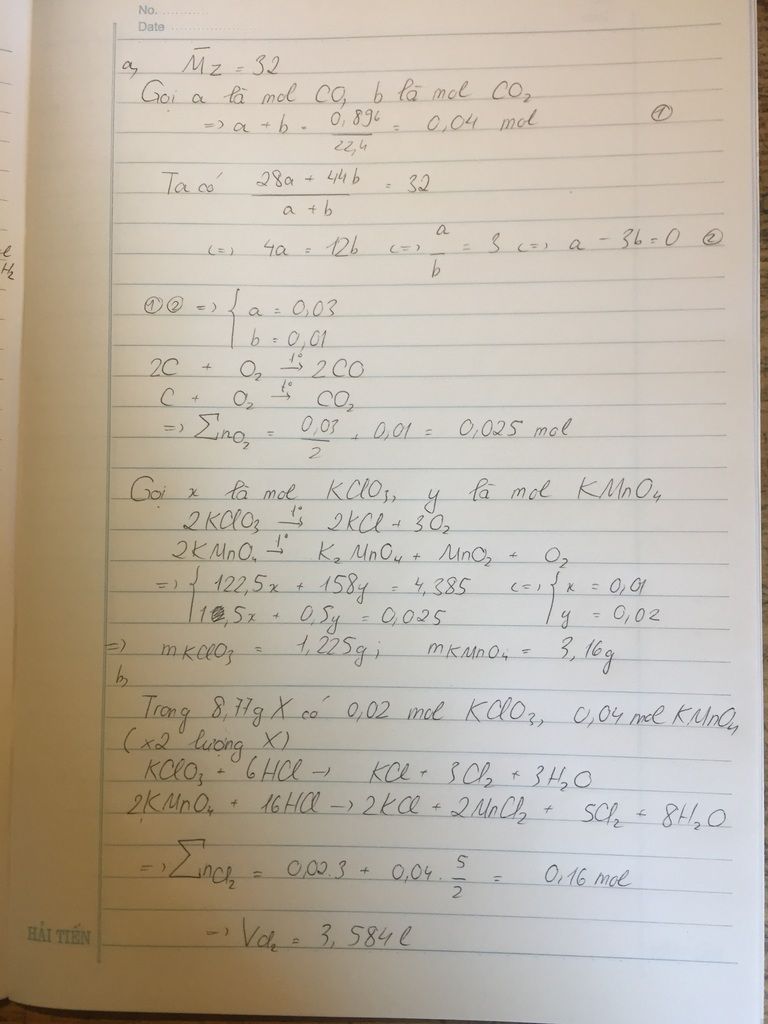 No.
Date
a, M̅z = 32
Gọi a là mol CO, b là mol CO₂
=> a + b = 0,896/22,4 = 0,04 mol ①
Ta có (28a + 44b)/(a + b) = 32
<=> 4a = 12b <=> a/b = 3 <=> a - 3b = 0 ②
①② => { a = 0,03
b = 0,01
2C + O₂ →t° 2CO
C + O₂ →t° CO₂
=> ∑nO₂ = 0,03/2 + 0,01 = 0,025 mol
Gọi x là mol KClO₃, y là mol KMnO₄
2KClO₃ →t° 2KCl + 3O₂
2KMnO₄ →t° K₂MnO₄ + MnO₂ + O₂
=> { 122,5x + 158y = 4,385 <=> { x = 0,01
1,5x + 0,5y = 0,025 y = 0,02
=> mKClO₃ = 1,225g; mKMnO₄ = 3,16g
b,
Trong 8,77g X có 0,02 mol KClO₃, 0,04 mol KMnO₄
(x2 lượng X)
KClO₃ + 6HCl → KCl + 3Cl₂ + 3H₂O
2KMnO₄ + 16HCl → 2KCl + 2MnCl₂ + 5Cl₂ + 8H₂O
=> ∑nCl₂ = 0,02.3 + 0,04.5/2 = 0,16 mol
=> VCl₂ = 3,584l
HẢI TIẾN